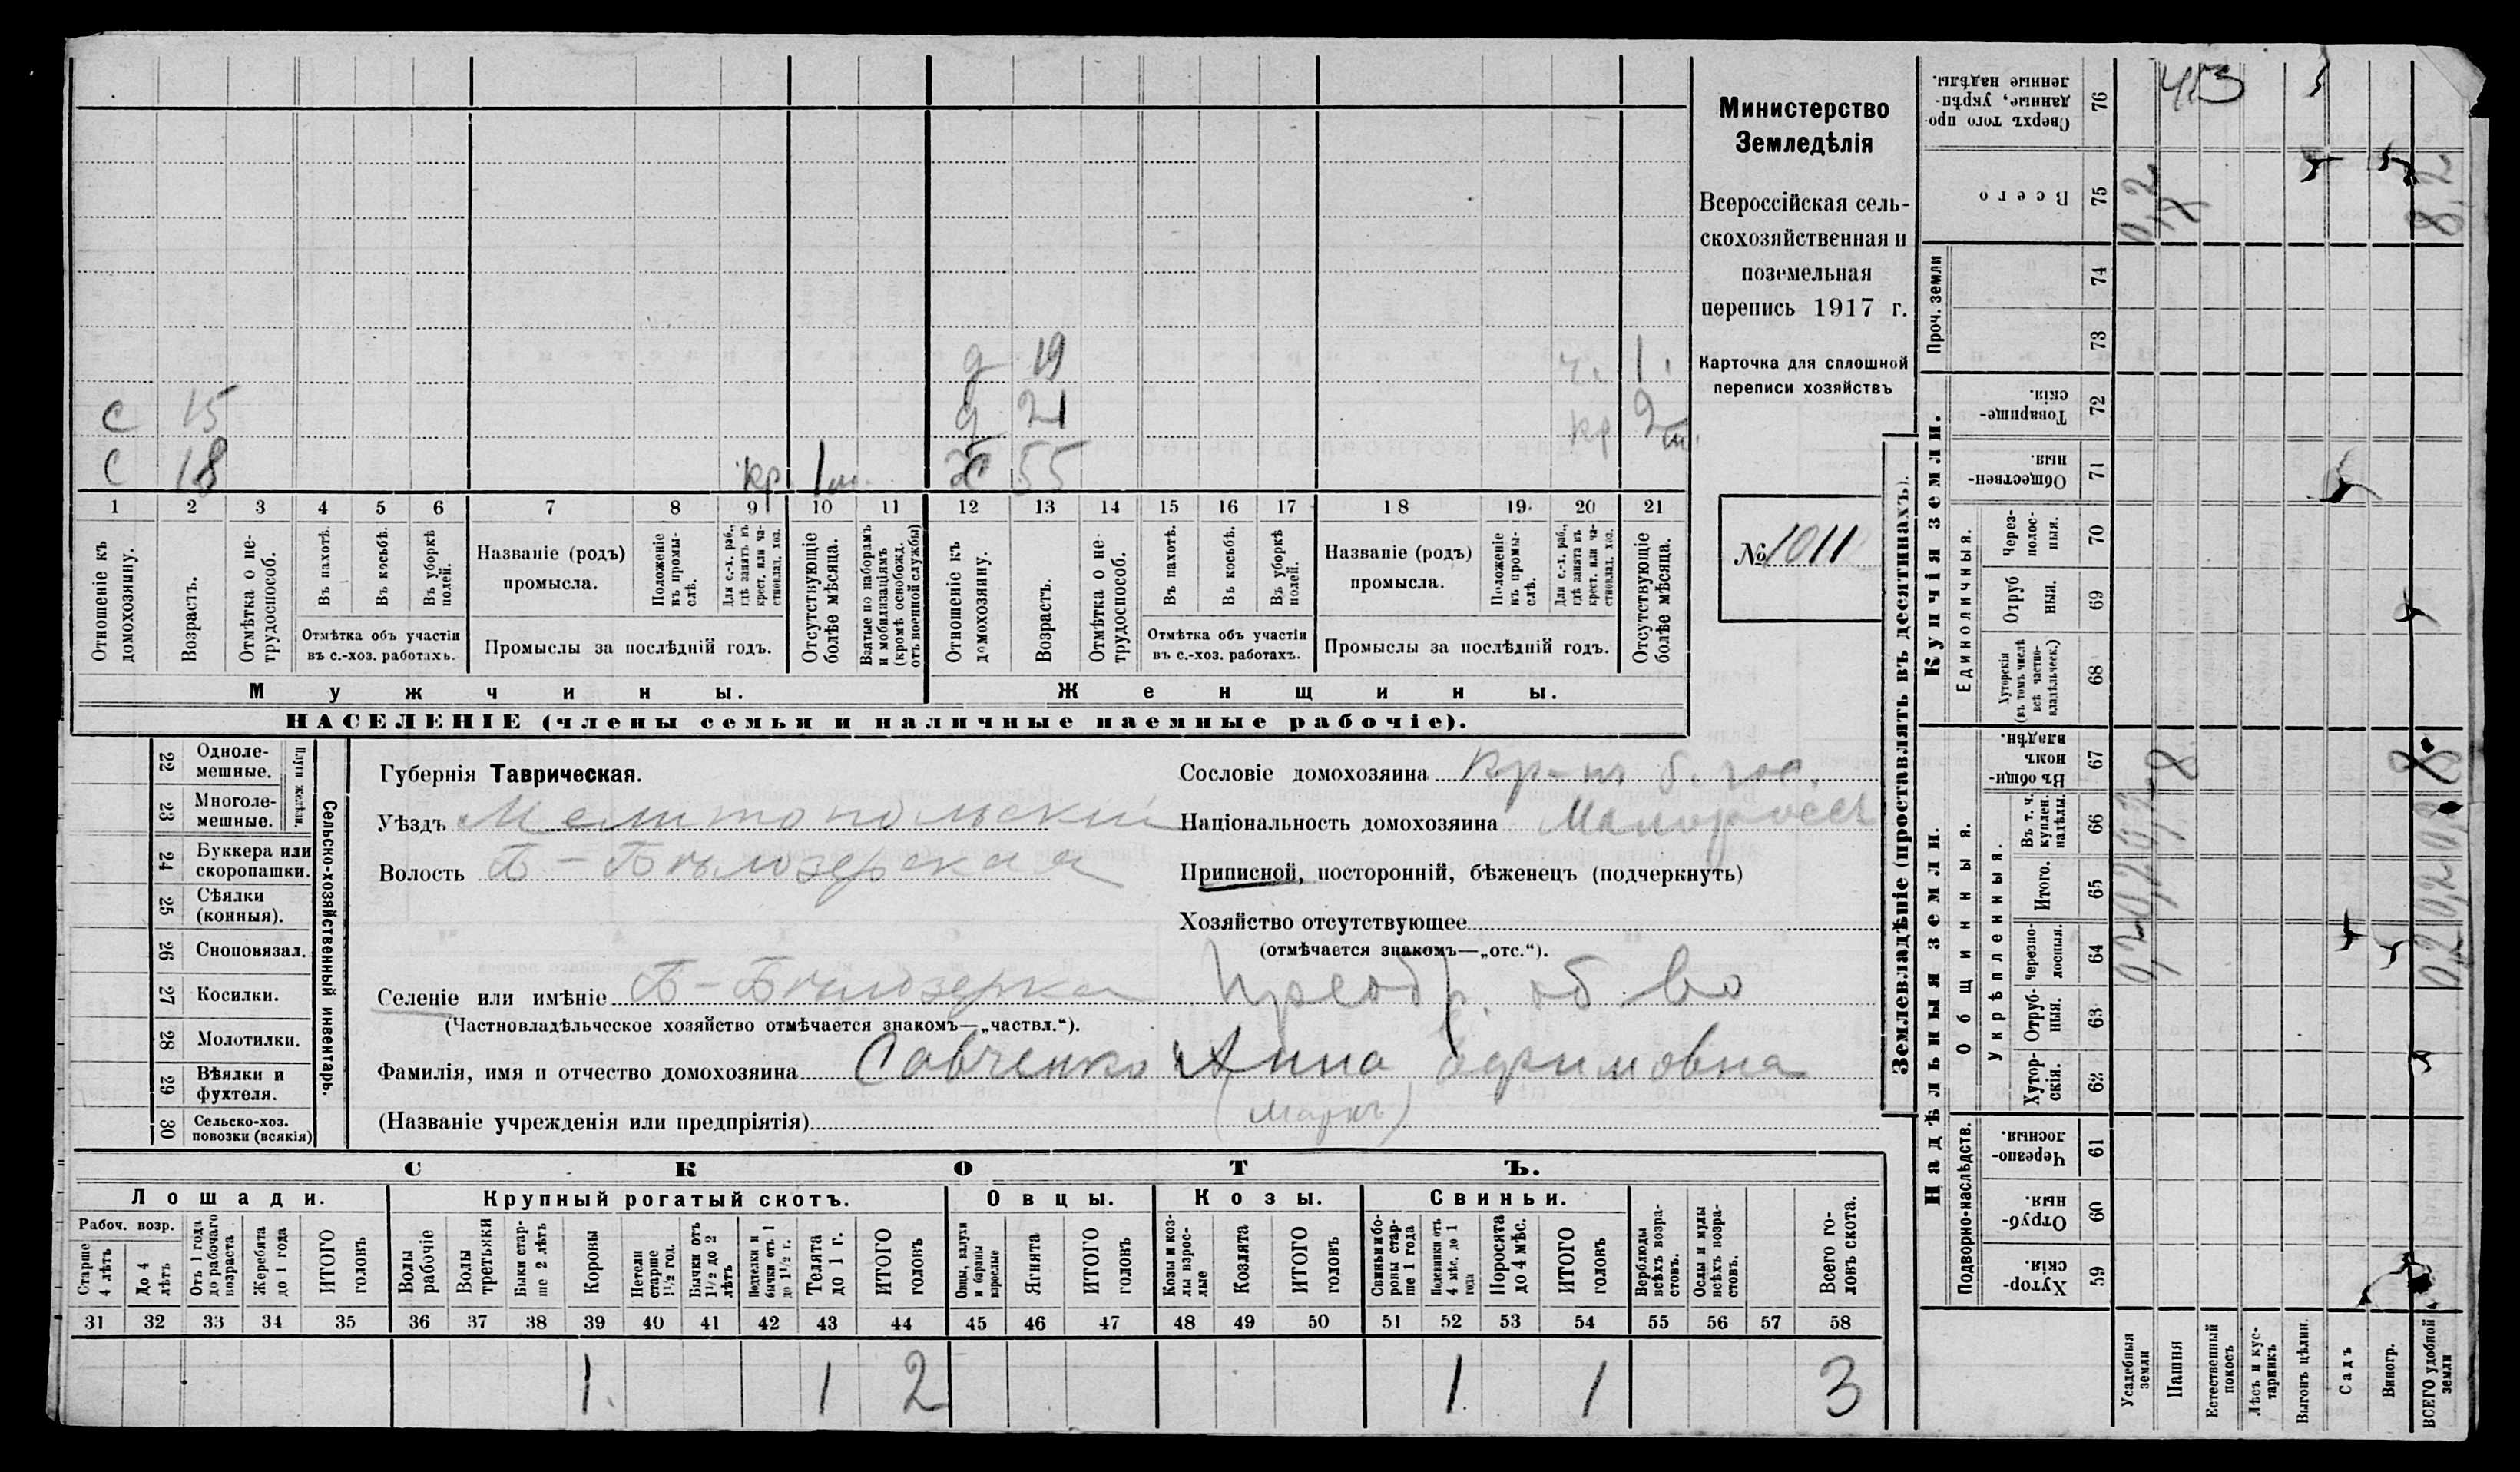 Министерство
Земледѣлія
Всероссійская сель-
скохозяйственная и
поземельная
перепись 1917 г.
Карточка для сплошной
переписи хозяйствъ
№ 1011
д 19 ч. 1.
с 15 д 21 кр 2 м.
с 18 кр. 1 м. ж 55
1 2 3 4 5 6 7 8 9 10 11 12 13 14 15 16 17 18 19 20 21
Отношеніе къ домохозяину.
Возрастъ.
Отмѣтка о не-трудоспособ.
Въ пахотѣ.
Въ косьбѣ.
Въ уборкѣ полей.
Отмѣтка объ участіи
въ с.-хоз. работахъ.
Названіе (родъ)
промысла.
Положеніе въ промы-слѣ.
Для с.-х. раб., гдѣ занятъ въ крест. или ча-стновлад. хоз.
Промыслы за послѣдній годъ.
Отсутствующіе болѣе мѣсяца.
Взятые по наборамъ и мобилизаціямъ (кромѣ освобожд. отъ военной службы)
Отношеніе къ домохозяину.
Возрастъ.
Отмѣтка о не-трудоспособ.
Въ пахотѣ.
Въ косьбѣ.
Въ уборкѣ полей.
Отмѣтка объ участіи
въ с.-хоз. работахъ.
Названіе (родъ)
промысла.
Положеніе въ промы-слѣ.
Для с.-х. раб., гдѣ занята въ крест. или ча-стновлад. хоз.
Промыслы за послѣдній годъ.
Отсутствующіе болѣе мѣсяца.
Мужчины. Женщины.
НАСЕЛЕНІЕ (члены семьи и наличные наемные рабочіе).
22 Одноле-мешные.
23 Многоле-мешные.
Плуги желѣзн.
24 Буккера или скоропашки.
25 Сѣялки (конныя).
26 Сноповязал.
27 Косилки.
28 Молотилки.
29 Вѣялки и фухтеля.
30 Сельско-хоз. повозки (всякія)
Сельско-хозяйственный инвентарь.
Губернія Таврическая.
Уѣздъ Мелитопольскій
Волость Б-Бѣлозерская
Сословіе домохозяина кр-нъ б. гос.
Національность домохозяина Малороссъ
Приписной, посторонній, бѣженецъ (подчеркнуть)
Хозяйство отсутствующее
(отмѣчается знакомъ—„отс.“).
Селеніе или имѣніе Б-Бѣлозерка Преобр. об-во
(Частновладѣльческое хозяйство отмѣчается знакомъ—„частвл.“).
Фамилія, имя и отчество домохозяина Савченко Анна Ефимовна
(Маркъ)
(Названіе учрежденія или предпріятія)
СКОТЪ.
Лошади. Крупный рогатый скотъ. Овцы. Козы. Свиньи.
Рабоч. возр.
Старше 4 лѣтъ
До 4 лѣтъ
Отъ 1 года до рабочаго возраста
Жеребята до 1 года
ИТОГО головъ
Волы рабочіе
Волы третьяки
Быки стар-ше 2 лѣтъ
Коровы
Нетели старше 1½ год.
Бычки отъ 1½ до 2 лѣтъ
Подтелки и бычки отъ 1 до 1½ г.
Телята до 1 г.
ИТОГО головъ
Овцы, валухи и бараны взрослые
Ягнята
ИТОГО головъ
Козы и коз-лы взрос-лые
Козлята
ИТОГО головъ
Свиньи и бо-ровы стар-ше 1 года
Подсвинки отъ 4 мѣс. до 1 года
Поросята до 4 мѣс.
ИТОГО головъ
Верблюды всѣхъ возра-стовъ.
Ослы и мулы всѣхъ возра-стовъ.
Всего го-ловъ скота.
31 32 33 34 35 36 37 38 39 40 41 42 43 44 45 46 47 48 49 50 51 52 53 54 55 56 57 58
1. 1 2 1 1 3
Землевладѣніе (проставлять въ десятинахъ).
Купчія земли.
Надѣльныя земли.
Сверхъ того про-данные, укрѣп-ленные надѣлы. 76 4,3
Всего 75 0,2 8 8,2
Проч. земли 74
73
Товарище-скія. 72
Обществен-ныя. 71
Единоличныя.
Через-полос-ныя. 70
Отруб-ныя. 69
Хуторскія (въ томъ числѣ всѣ частно-владѣльческ.) 68
Общинныя.
Въ общи-номъ владѣн. 67 8 8
Укрѣпленныя.
Въ т. ч. куплен. надѣлы. 66 0,2 0,2
Итого. 65 0,2 0,2
Черезпо-лосныя. 64 0,2 0,2
Отруб-ныя. 63
Хутор-скія. 62
Подворно-наслѣдств.
Черезпо-лосныя. 61
Отруб-ныя. 60
Хутор-скія. 59
Усадебныя земли
Пашня
Естественный покосъ
Лѣсъ и кус-тарникъ
Выгонъ цѣлин.
Садъ
Виногр.
ВСЕГО удобной земли